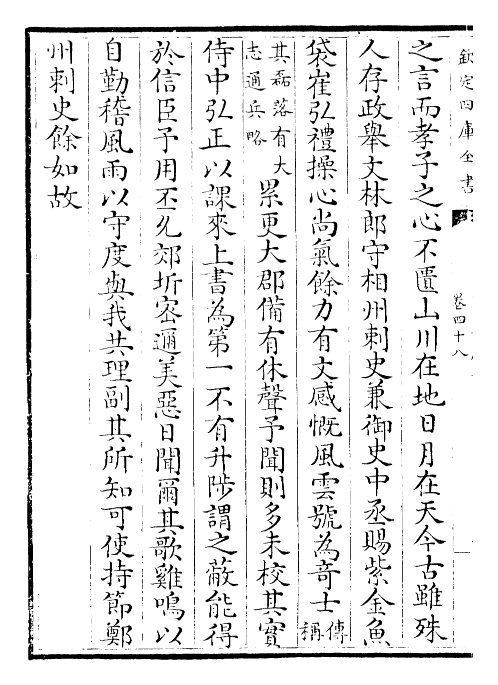 欽定四庫全書
卷四十八
之言而孝子之心不匱山川在地日月在天今古雖殊
人存政舉文林郎守相州刺史兼御史中丞賜紫金魚
袋崔弘禮操心尚氣餘力有文感慨風雲號為奇士傳稱
其磊落有大志通兵略累更大郡備有休聲予聞則多未校其實
侍中弘正以課來上書為第一不有升陟謂之蔽能得
於信臣予用丕允郊圻密邇美惡日聞爾其歌雞鳴以
自勤稽風雨以守度與我共理副其所知可使持節鄭
州刺史餘如故